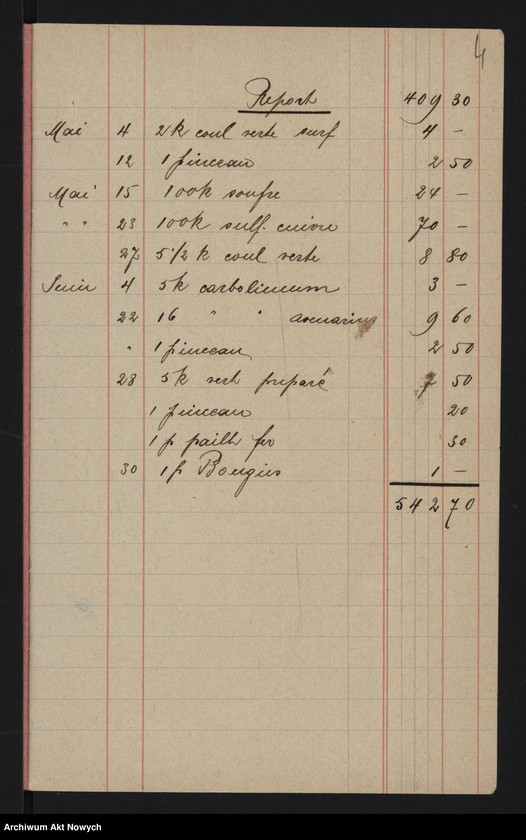 4
Report 409 30
Mai 4 2k coul verte surf 4 –
12 1 pinceau 2 50
Mai 15 100k soufre 24 –
" " 23 100k sulf. cuivre 70 –
27 5 1/2 k coul verte 8 80
Juin 4 5k carbolineum 3 –
22 16 " " avenarius 9 60
" 1 pinceau 2 50
28 5k vert preparé 7 50
1 pinceau 20
1 p paille fer 30
30 1 p Bougies 1 –
542 70
Archiwum Akt Nowych